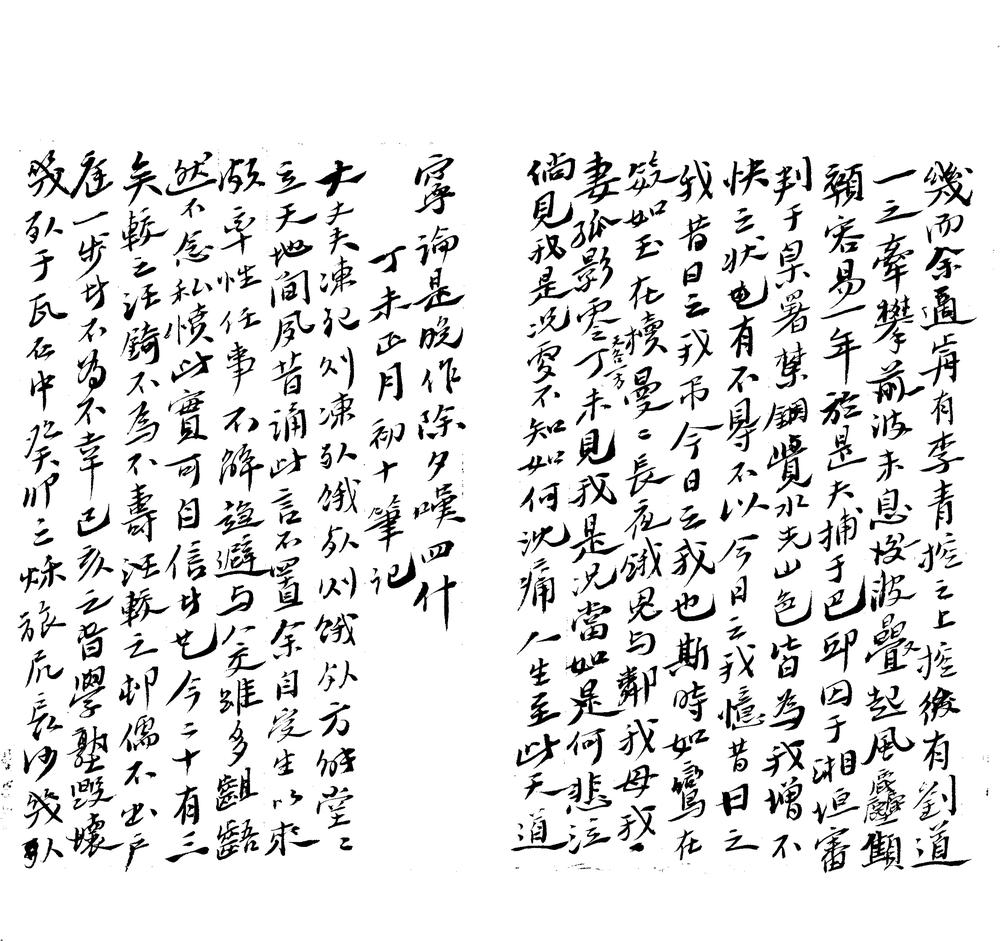 幾而余適脊有李青控之上控後有劉道
一之牽攀前波未息後波疊起風靡顯
額容易一年於是夫捕于巴邱囚于湘垣審
判于臬署禁錮嚐水光山色皆為我增不
快之狀也有不得不以今日之我憶昔日之
我昔日之我吊今日之我也斯時如鸞在
籨如玉在櫝曼々長夜餓鬼与鄰我母我々
妻孤影零丁天各一方未見我是況當如是何悲泣
倘見我是況更不知如何沈痛人生至此天道
寧論是晚作除夕嘆四什
丁未正月初十筆記
大丈夫凍死則凍死餓死則餓死方能堂々
立天地間夙昔誦此言不置余自受生以來
激率性任事不解趨避与人交雖多齟齬
然不念私憤此實可自信者也今二十有三
矣較之汪錡不為不壽汪較之邨儒不出戶
庭一步者不為不幸已亥之晉學塾毀壞
幾死于瓦石中癸卯之秋旅居長沙幾死